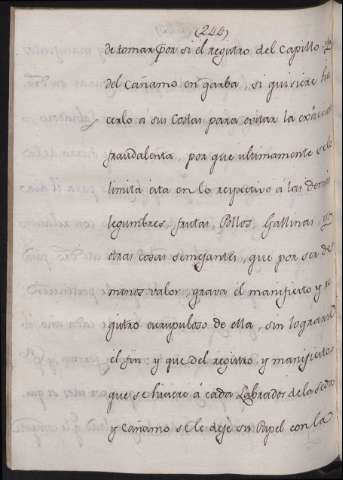 (244)
de tomar por si el registro del Capillo
del Cañamo en garba, si quisiere ha
cerlo a sus Costas para evitar la
fraudalenta, por que ultimamente se le
limita esta en lo respectivo á las demas
legumbres, frutas, Pollos, Gallinas, y
otras cosas semejantes, que por ser de
menos valor, grava el manifiesto y re
gistro escrupuloso de ella, sin lograrse
el fin: y que del registro, y manifiesto
que se hiciere á cada Labrador de la Seda
y Cañamo se le deje un Papel con la